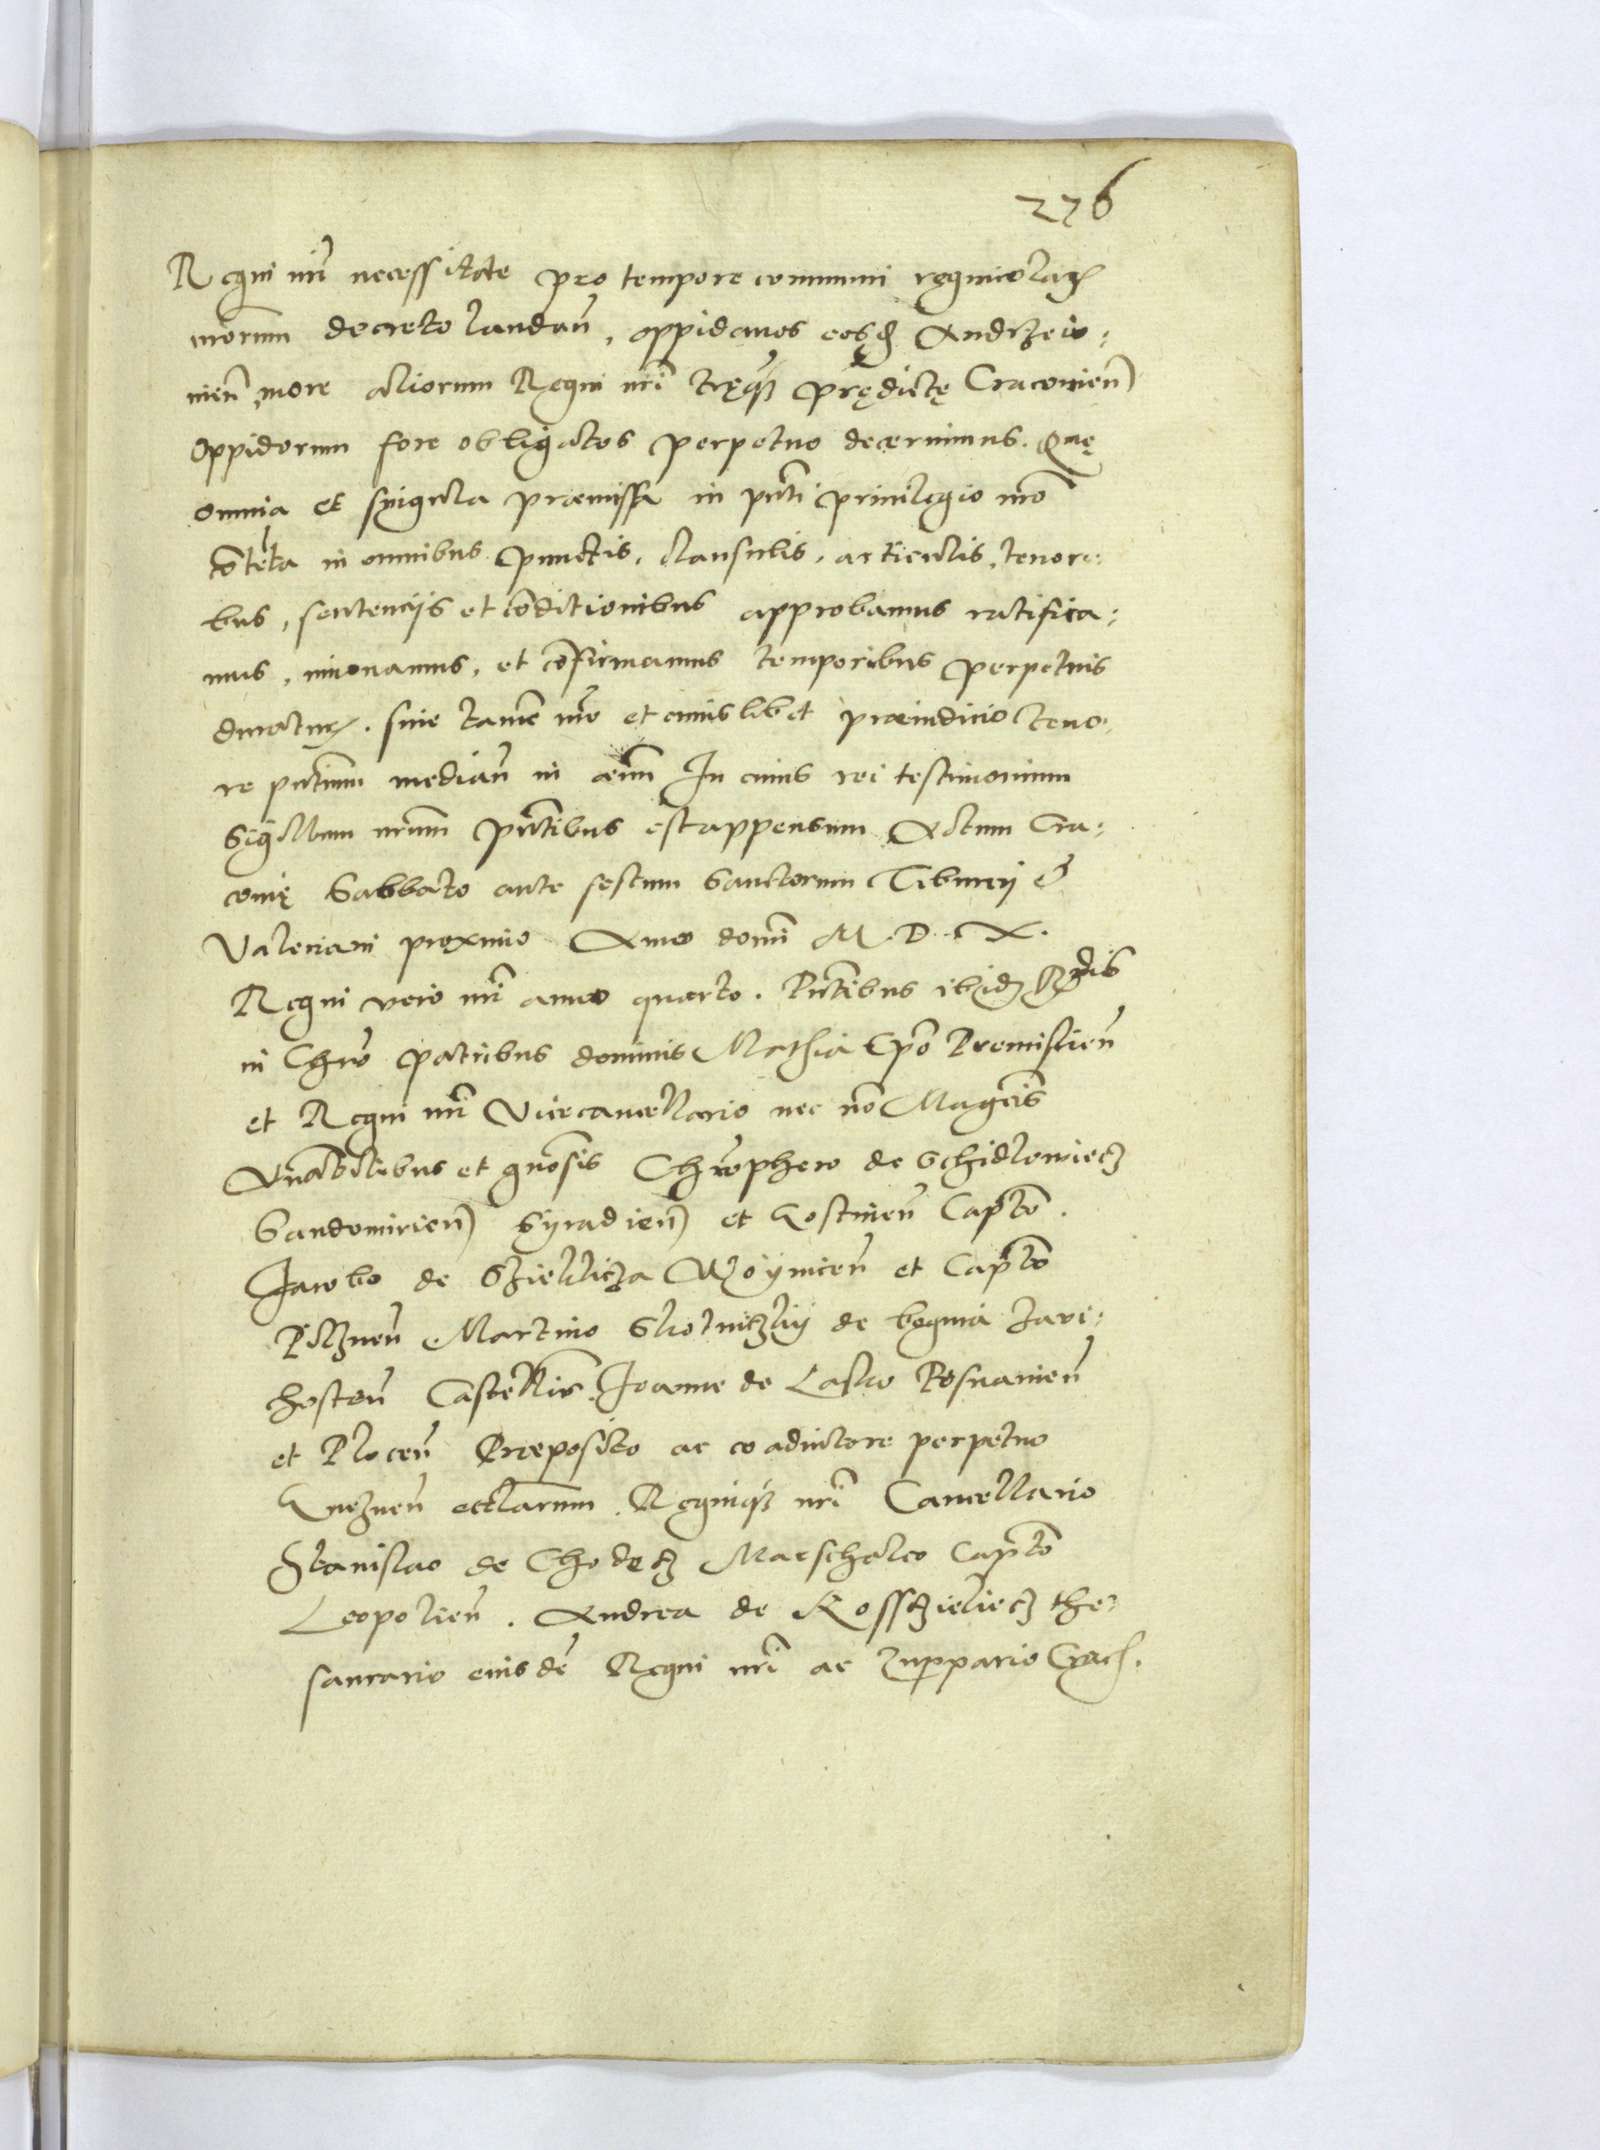 276
Regni nri necessitate pro tempore communi regnicolarum
nrorum decreto laudan, oppidanos eosq Andrzeio-
uien, more aliorum Regni nri terreq prędictę Cracouien
oppidorum fore obligatos perpetuo decernimus. Quę
omnia et singula praemissa in pnti priuilegio nro
cōtēta in omnibus punctis, clausulis, articulis, tenori-
bus, sentencijs et cōditionibus approbamus ratifica-
mus, innouamus, et cōfirmamus temporibus perpetuis
duratur. sine tamē nro et cuiuslibet praeiudicio teno-
re pntium median in aeuum In cuius rei testimonium
Sigillum nrum pntibus est appensum Actum Cra-
couię Sabbato ante festum Sanctorum Tiburcij &
Valeriani proximo Anno domi M.D.X.
Regni vero nri anno quarto. Pntibus ibid Rndis
in Chro patribus dominis Mathia Epo Premislien
et Regni nri Vicecancellario nec nō Magcis
Venabilibus et gnosis Chrophero de Schidlowiecz
Sandomirien Syradien et Gostinen Capto.
Jacobo de Szieklicza Woynicen et Capto
Pilznen Martino Skotniczkij de bogoria Zavi-
chosten Castellis Joanne de Lasko Posnanien
et Plocen Praeposito ac coadiutore perpetuo
Gneznen ecclarum Regniq nri Cancellario
Stanislao de Chodecz Marschalco Capto
Leopolien. Andrea de Kossczieliecz the-
saurario eiusdē Regni nri ac Zuppario Crac.